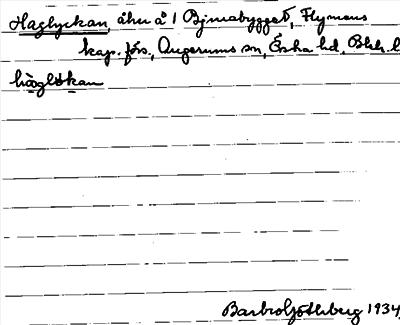 Haglyckan, åker å 1 Björnabygget, Flymens
kap. förs., Augerums sn, Östra hd, Blek. l
hāglökan
Barbro Göthberg 1934